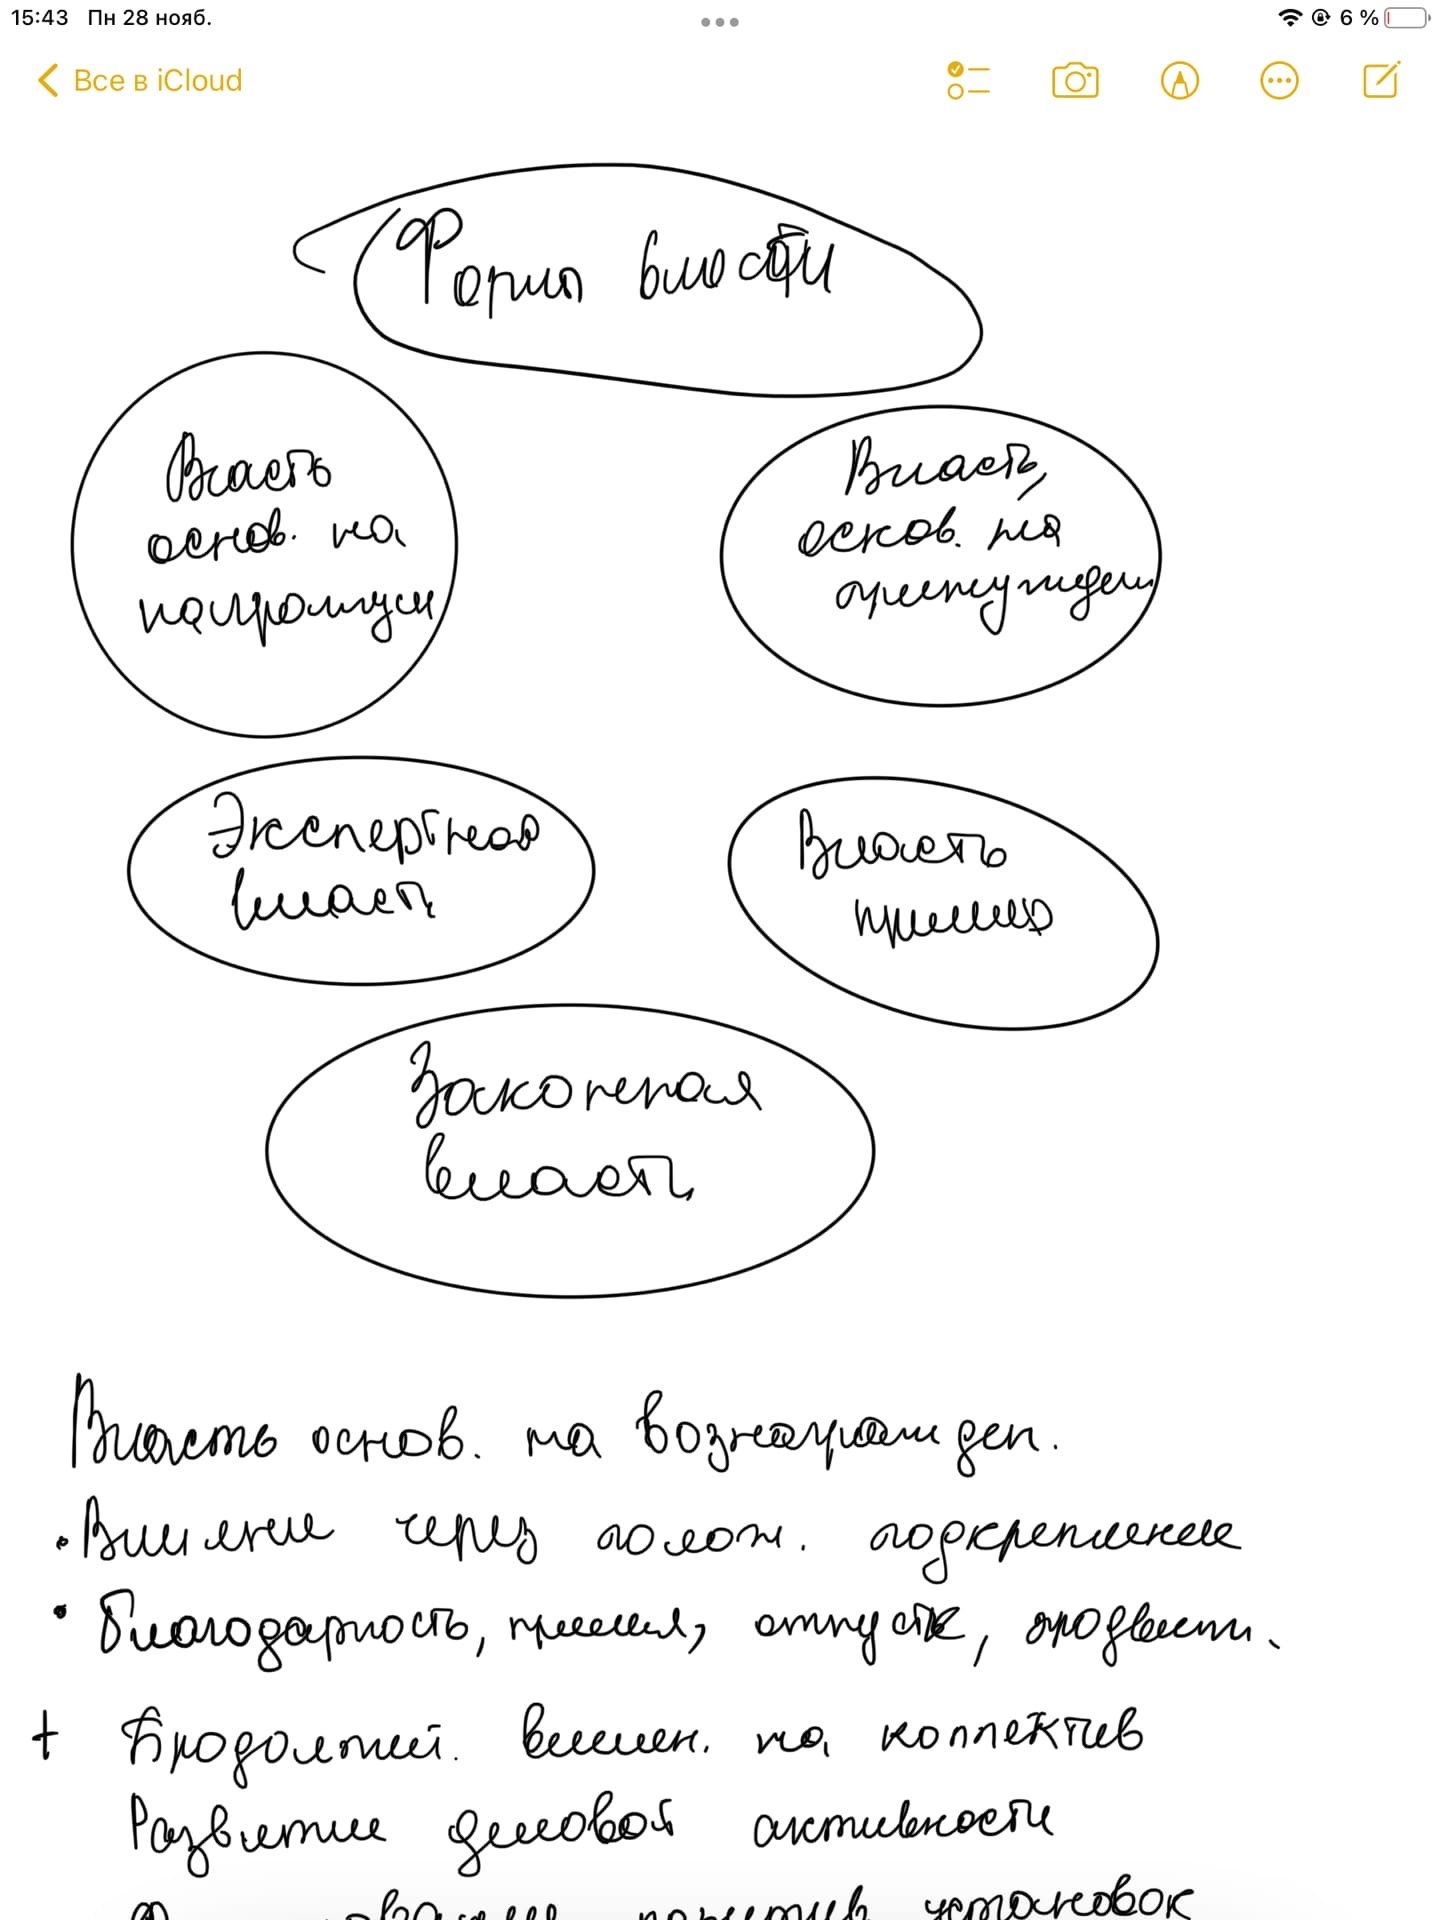 15:43 Пн 28 нояб.
6 %
Все в iCloud
Формы власти
Власть
основ. на
Власть,
основ. на
принужден
Экспертная
власть
Власть
примера
Законная
власть
Власть основ. на вознагражден.
• Влияние через полож. подкрепление
• Благодарность, премия, отпуск, продвест.
+ Продолжит. влиян. на коллектив
Развитие деловой активности
установок